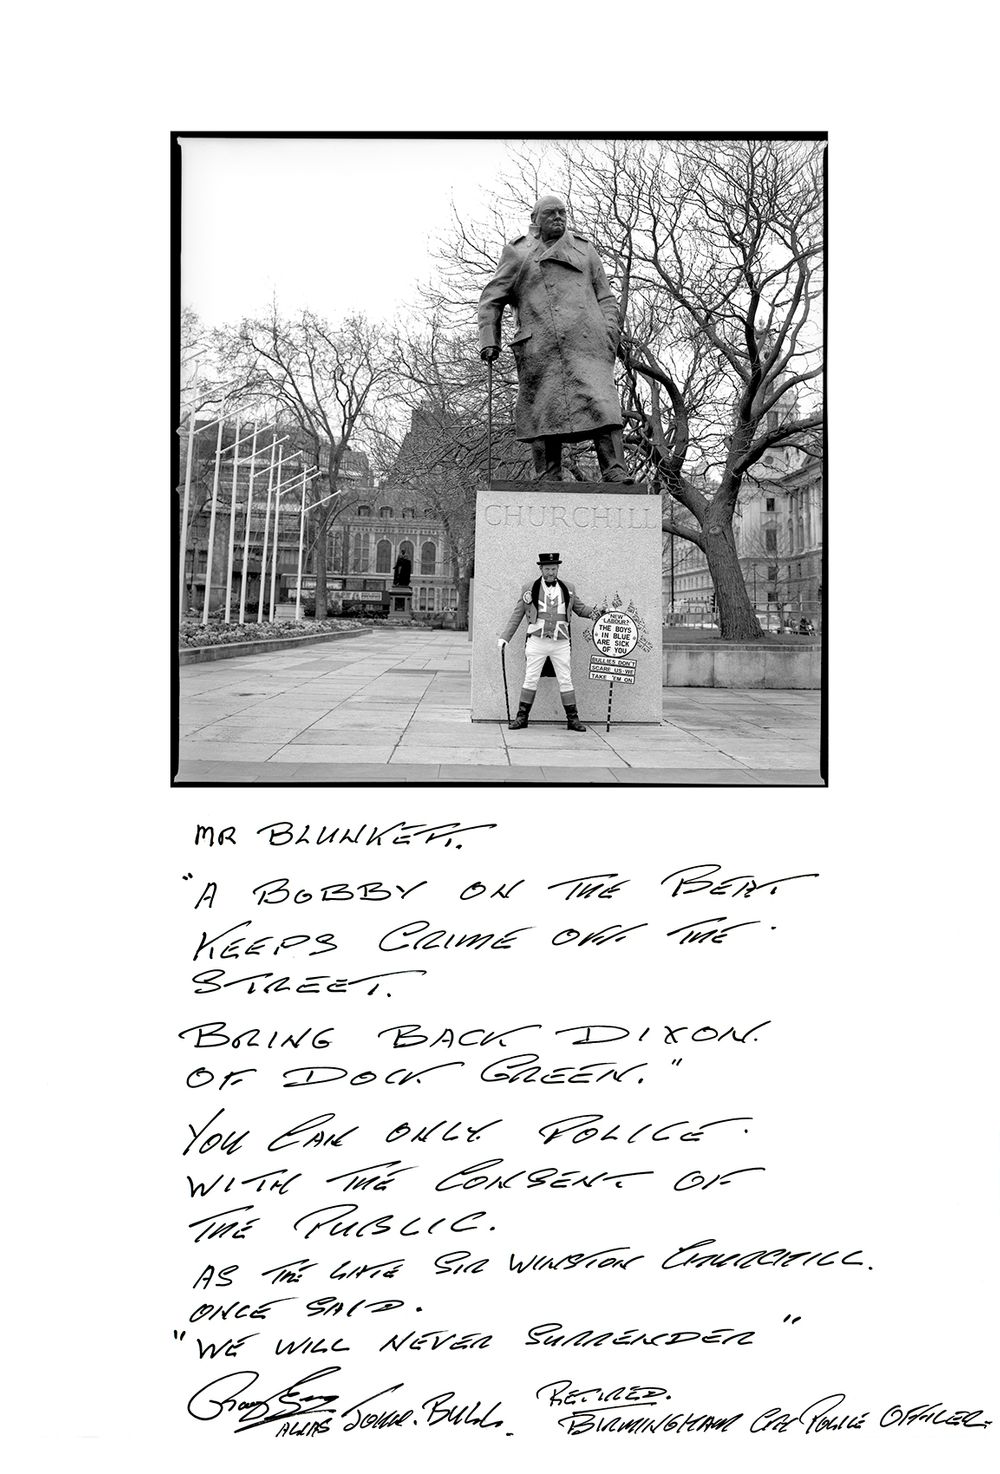 CHURCHILL
NEW
LABOUR?
THE BOYS
IN BLUE
ARE SICK
OF YOU
BULLIES DON'T
SCARE US WE
TAKE 'EM ON
MR BLUNKETT.
"A BOBBY ON THE BEAT.
KEEPS CRIME OFF THE
STREET.
BRING BACK DIXON.
OF DOCK GREEN."
YOU CAN ONLY POLICE.
WITH THE CONSENT OF
THE PUBLIC.
AS THE LATE SIR WINSTON CHURCHILL.
ONCE SAID.
"WE WILL NEVER SURRENDER"
ALIAS JOHN. BULL. RETIRED.
BIRMINGHAM CITY POLICE OFFICER.